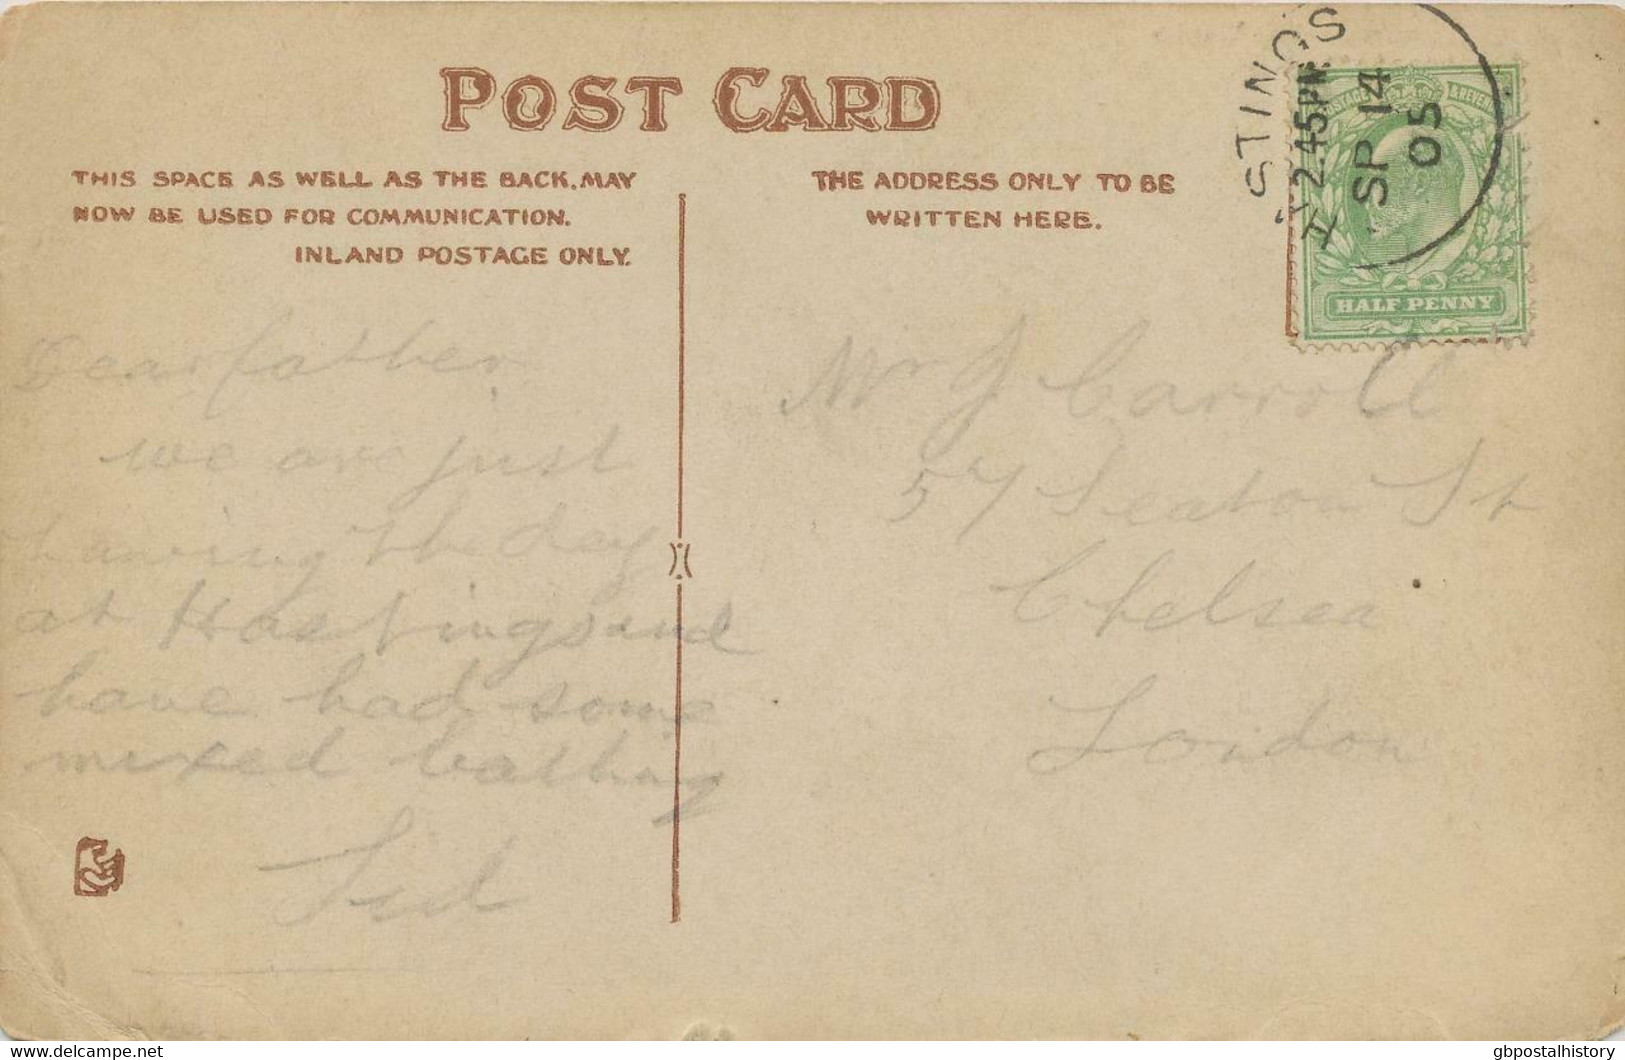 POST CARD
THIS SPACE AS WELL AS THE BACK, MAY
NOW BE USED FOR COMMUNICATION.
INLAND POSTAGE ONLY.
THE ADDRESS ONLY TO BE
WRITTEN HERE.
HASTINGS
2.45PM
SP 14
05
POSTAGE & REVENUE
HALF PENNY
Dear father
we are just
having the day
at Hastings and
have had some
mixed bathing
Sid
Mr J Carroll
57 Seaton St
Chelsea
London
www.delcampe.net
gbpostalhistory